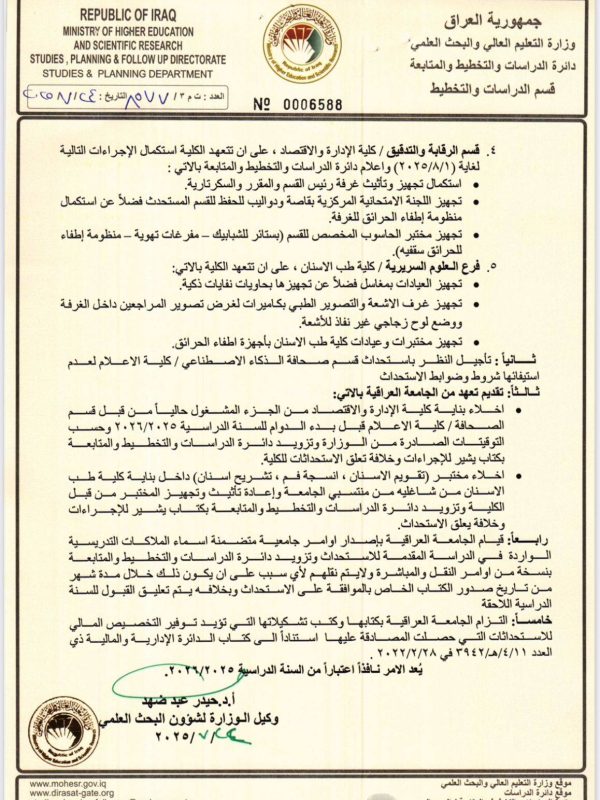 REPUBLIC OF IRAQ
MINISTRY OF HIGHER EDUCATION
AND SCIENTIFIC RESEARCH
STUDIES, PLANNING & FOLLOW UP DIRECTORATE
STUDIES & PLANNING DEPARTMENT
جمهورية العراق
وزارة التعليم العالي والبحث العلمي
دائرة الدراسات والتخطيط والمتابعة
قسم الدراسات والتخطيط
العدد: ت م ٣/
التاريخ:
Nº 0006588
٤. قسم الرقابة والتدقيق / كلية الإدارة والاقتصاد ، على ان تتعهد الكلية استكمال الإجراءات التالية
لغاية (٢٠٢٥/٨/١) واعلام دائرة الدراسات والتخطيط والمتابعة بالاتي :
• استكمال تجهيز وتأثيث غرفة رئيس القسم والمقرر والسكرتارية.
• تجهيز اللجنة الامتحانية المركزية بقاصة ودواليب للحفظ للقسم المستحدث فضلاً عن استكمال
منظومة إطفاء الحرائق للغرفة.
• تجهيز مختبر الحاسوب المخصص للقسم (بستائر للشبابيك – مفرغات تهوية – منظومة إطفاء
للحرائق سقفيه).
٥. فرع العلوم السريرية / كلية طب الاسنان ، على ان تتعهد الكلية بالاتي:
• تجهيز العيادات بمغاسل فضلاً عن تجهيزها بحاويات نفايات ذكية.
• تجهيز غرف الاشعة والتصوير الطبي بكاميرات لغرض تصوير المراجعين داخل الغرفة
ووضع لوح زجاجي غير نفاذ للأشعة.
• تجهيز مختبرات وعيادات كلية طب الاسنان بأجهزة اطفاء الحرائق.
ثـــانيـــاً : تأجيل النظر باستحداث قسم صحافة الذكاء الاصطناعي / كلية الاعلام لعدم
استيفائها شروط وضوابط الاستحداث
ثـالثـاً: تقديم تعهد من الجامعة العراقية بالاتي:
• اخلاء بناية كلية الإدارة والاقتصاد من الجزء المشغول حالياً من قبل قسم
الصحافة / كلية الاعلام قبل بدء الدوام للسنة الدراسية ٢٠٢٦/٢٠٢٥ وحسب
التوقيتات الصادرة من الوزارة وتزويد دائرة الدراسات والتخطيط والمتابعة
بكتاب يشير للإجراءات وخلافة تعلق الاستحداثات للكلية.
• اخلاء مختبر (تقويم الاسنان ، انسجة فم ، تشريح اسنان) داخل بناية كلية طب
الاسنان من شاغليه من منتسبي الجامعة وإعادة تأثيث وتجهيز المختبر من قبل
الكلية وتزويد دائرة الدراسات والتخطيط والمتابعة بكتاب يشير للإجراءات
وخلافة يعلق الاستحداث.
رابـعـاً: قيام الجامعة العراقية بإصدار اوامر جامعية متضمنة اسماء الملاكات التدريسية
الواردة في الدراسة المقدمة للاستحداث وتزويد دائرة الدراسات والتخطيط والمتابعة
بنسخة من اوامر النقل والمباشرة ولايتم نقلهم لأي سبب على ان يكون ذلك خلال مدة شهر
من تاريخ صدور الكتاب الخاص بالموافقة على الاستحداث وبخلافه يتم تعليق القبول للسنة
الدراسية اللاحقة
خامسـاً: التزام الجامعة العراقية بكتابها وكتب تشكيلاتها التي تؤيد توفير التخصيص المالي
للاستحداثات التي حصلت المصادقة عليها استناداً الى كتاب الدائرة الإدارية والمالية ذي
العدد ٤/١١/هـ/٣٩٤٢ في ٢٠٢٢/٢/٢٨.
يُعد الامر نافذاً اعتباراً من السنة الدراسية ٢٠٢٦/٢٠٢٥.
أ.د.حيدر عبد ضهد
وكيل الوزارة لشؤون البحث العلمي
٢٠٢٥/٧/٢٤
www.mohesr.gov.iq
www.dirasat-gate.org
موقع وزارة التعليم العالي والبحث العلمي
موقع دائرة الدراسات